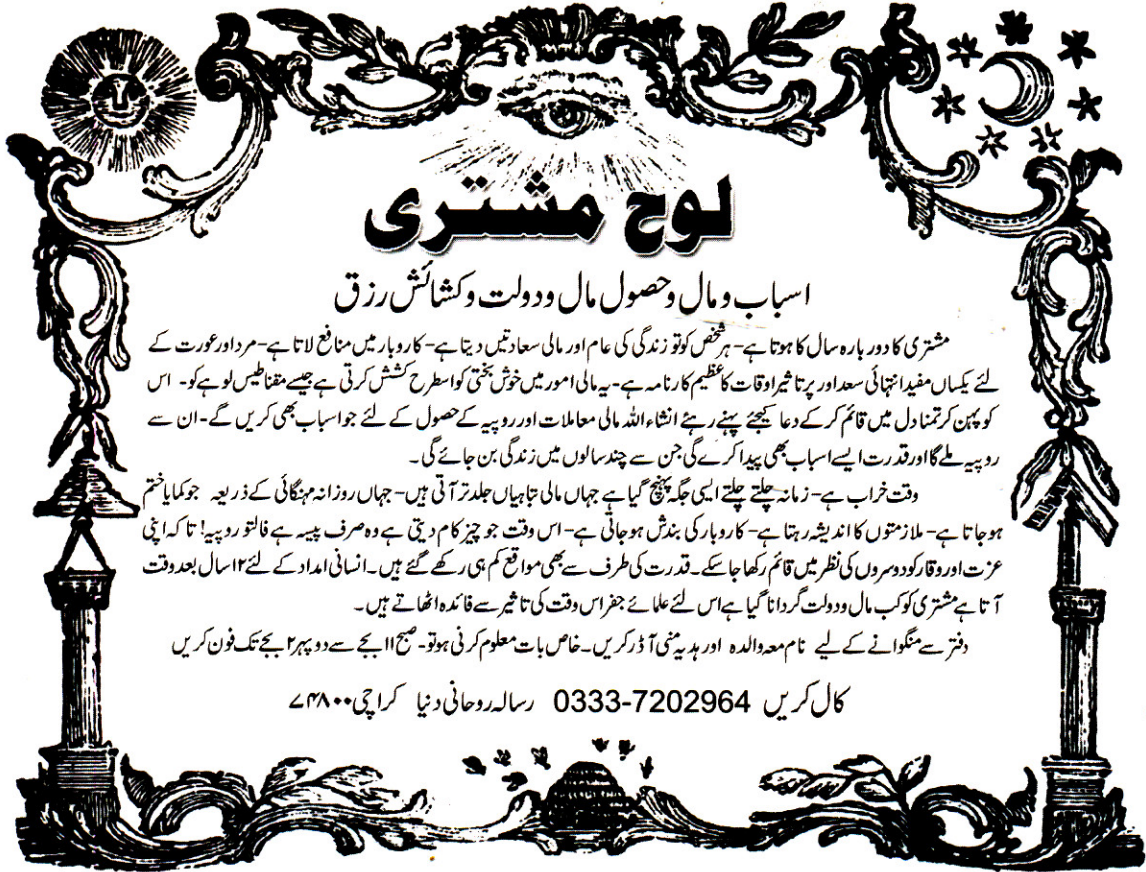 لوح مشتری
اسباب و مال و حصول مال و دولت و کشائش رزق
مشتری کا دور بارہ سال کا ہوتا ہے - ہر شخص کو تو زندگی کی عام اور مالی سعادتیں دیتا ہے - کاروبار میں منافع لاتا ہے - مرد اور عورت کے
لئے یکساں مفید انتہائی سعد اور پر تاثیر اوقات کا عظیم کارنامہ ہے - یہ مالی امور میں خوش بختی کو اسطرح کشش کرتی ہے جیسے مقناطیس لوہے کو - اس
کو پہن کر تمنا دل میں قائم کر کے دعا کیجئے پہنے رہئے انشاء اللہ مالی معاملات اور روپیہ کے حصول کے لئے جو اسباب بھی کریں گے - ان سے
روپیہ ملے گا اور قدرت ایسے اسباب بھی پیدا کرے گی جن سے چند سالوں میں زندگی بن جائے گی ۔
وقت خراب ہے - زمانہ چلتے چلتے ایسی جگہ پہنچ گیا ہے جہاں مالی تباہیاں جلد تر آتی ہیں - جہاں روزانہ مہنگائی کے ذریعہ جو کمایا ختم
ہو جاتا ہے - ملازمتوں کا اندیشہ رہتا ہے - کاروبار کی بندش ہو جاتی ہے - اس وقت جو چیز کام دیتی ہے وہ صرف پیسہ ہے فالتو روپیہ! تا کہ اپنی
عزت اور وقار کو دوسروں کی نظر میں قائم رکھا جا سکے ۔ قدرت کی طرف سے بھی مواقع کم ہی رکھے گئے ہیں ۔ انسانی امداد کے لئے ۱۲ سال بعد وقت
آتا ہے مشتری کو کب مال و دولت گردانا گیا ہے اس لئے علمائے جفر اس وقت کی تاثیر سے فائدہ اٹھاتے ہیں ۔
دفتر سے منگوانے کے لیے نام معہ والدہ اور ہدیہ منی آڈر کریں ۔ خاص بات معلوم کرنی ہو تو - صبح ۱۱ بجے سے دوپہر ۲ بجے تک فون کریں
کال کریں 0333-7202964 رسالہ روحانی دنیا کراچی ۷۴۸۰۰